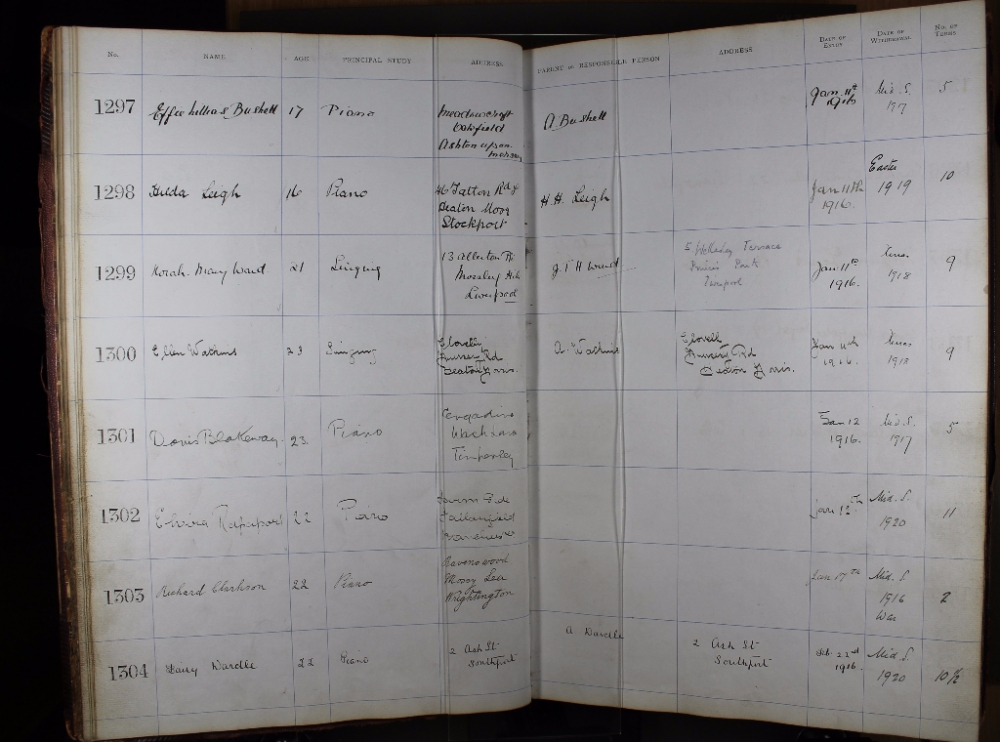 No. NAME AGE PRINCIPAL STUDY ADDRESS PARENT or RESPONSIBLE PERSON ADDRESS DATE OF ENTRY DATE OF WITHDRAWAL No. OF TERMS
1297 Bushell 17 Piano A. Bushell Jan. 11th Mid. S. 5
Oakfield 1916 1917
Ashton upon
Mersey
1298 Hilda Leigh 16 Piano 46 Tatton Rd H. H. Leigh Jan 11th Easter 10
Heaton Moor 1916. 1919
Stockport
1299 Norah Mary Ward 21 Singing 13 Allerton Rd J T H Ward 5 Terrace Jan 11th Xmas 9
Mossley Hill Princes Park 1916. 1918
Liverpool Liverpool
1300 Ellen Watkins 23 Singing Clovelly A. Watkins Clovelly Jan 11th Xmas 9
Rd Rd 1916. 1918
Heaton Heaton
1301 Doris Blakeway 23 Piano Engadine Jan 12 Mid. S. 5
Lane 1916. 1917
Timperley
1302 Rapaport 22 Piano Jan 12th Mid. S. 11
Fallowfield 1920
Manchester
1303 Richard Clarkson 22 Piano Ravenswood Jan 17th Mid. S 2
Mossy Lea 1916
Wrightington War
1304 Harry Wardle 22 Piano 2 Ash St A Wardle 2 Ash St Feb. 22nd Mid S. 10½
Southport Southport 1916. 1920